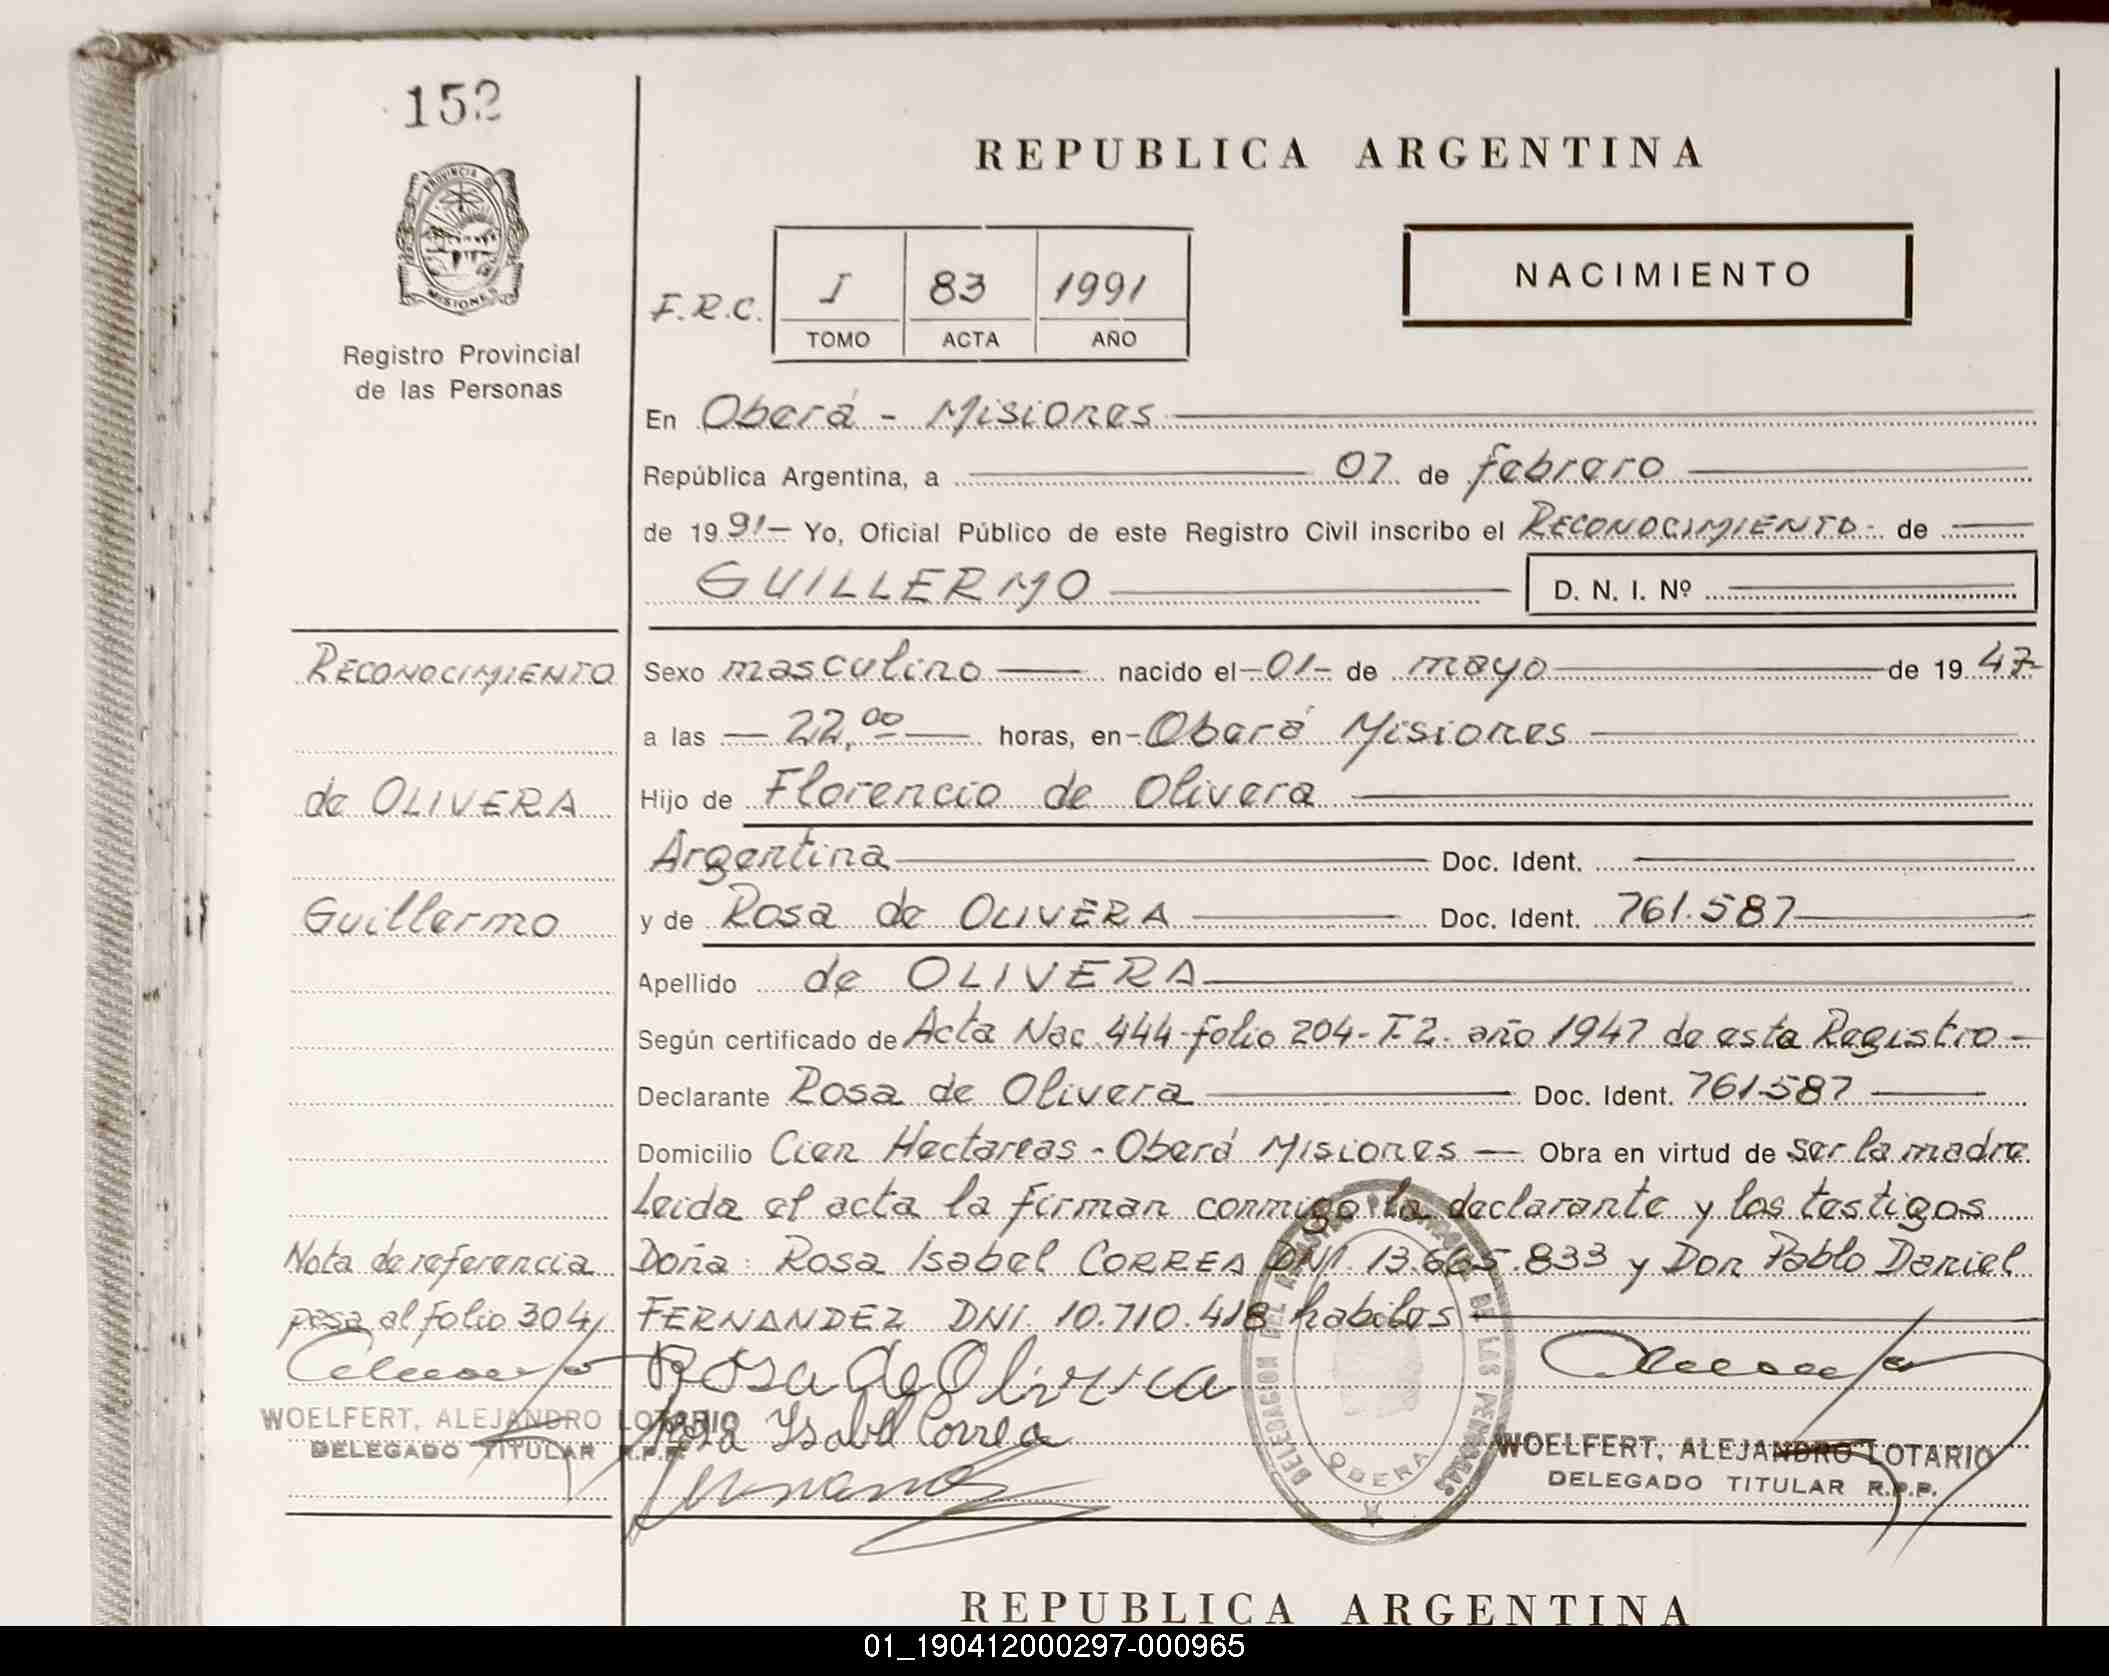 152
PROVINCIA DE
MISIONES
Registro Provincial
de las Personas
REPUBLICA ARGENTINA
F.R.C.
I 83 1991
TOMO ACTA AÑO
NACIMIENTO
En Oberá - Misiones
República Argentina, a 07 de febrero
de 1991- Yo, Oficial Público de este Registro Civil inscribo el RECONOCIMIENTO de
GUILLERMO D. N. I. Nº
Sexo masculino nacido el -01- de mayo de 1947-
a las 22,00 horas, en Oberá Misiones
Hijo de Florencio de Olivera
Argentina Doc. Ident.
y de Rosa de OLIVERA Doc. Ident. 761.587
Apellido de OLIVERA
Según certificado de Acta Nac. 444-folio 204-T.2. año 1947 de esta Registro-
Declarante Rosa de Olivera Doc. Ident. 761587
Domicilio Cien Hectareas - Oberá Misiones Obra en virtud de ser la madre
Leida el acta la firman conmigo la declarante y los testigos
Doña: Rosa Isabel CORREA DNI. 13.665.833 y Don Pablo Daniel
FERNANDEZ DNI. 10.710.418 habiles
RECONOCIMIENTO
de OLIVERA
Guillermo
Nota de referencia
pasa al folio 304
WOELFERT, ALEJANDRO LOTARIO
DELEGADO TITULAR R.P.P.
Rosa de Olivera
Rosa Isabel Correa
DELEGACION DEL REGISTRO DE LAS PERSONAS
OBERA
WOELFERT, ALEJANDRO LOTARIO
DELEGADO TITULAR R.P.P.
REPUBLICA ARGENTINA
01_190412000297-000965